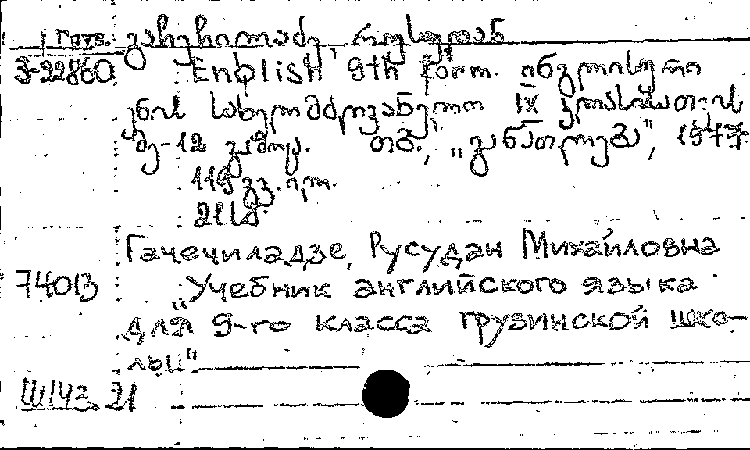 გაჩეჩილაძე, რუსუდან
3-22860 English 9th form. ინგლისური
ენის სახელმძღვანელო IX კლასისათვის
მე-12 გამოც. თბ., „განათლება", 1977
119 გვ. ილ.
Гачечиладзе, Русудан Михайловна
74013 „Учебник английского языка
для 9-го класса грузинской шко-
лы"
Ш143. 21